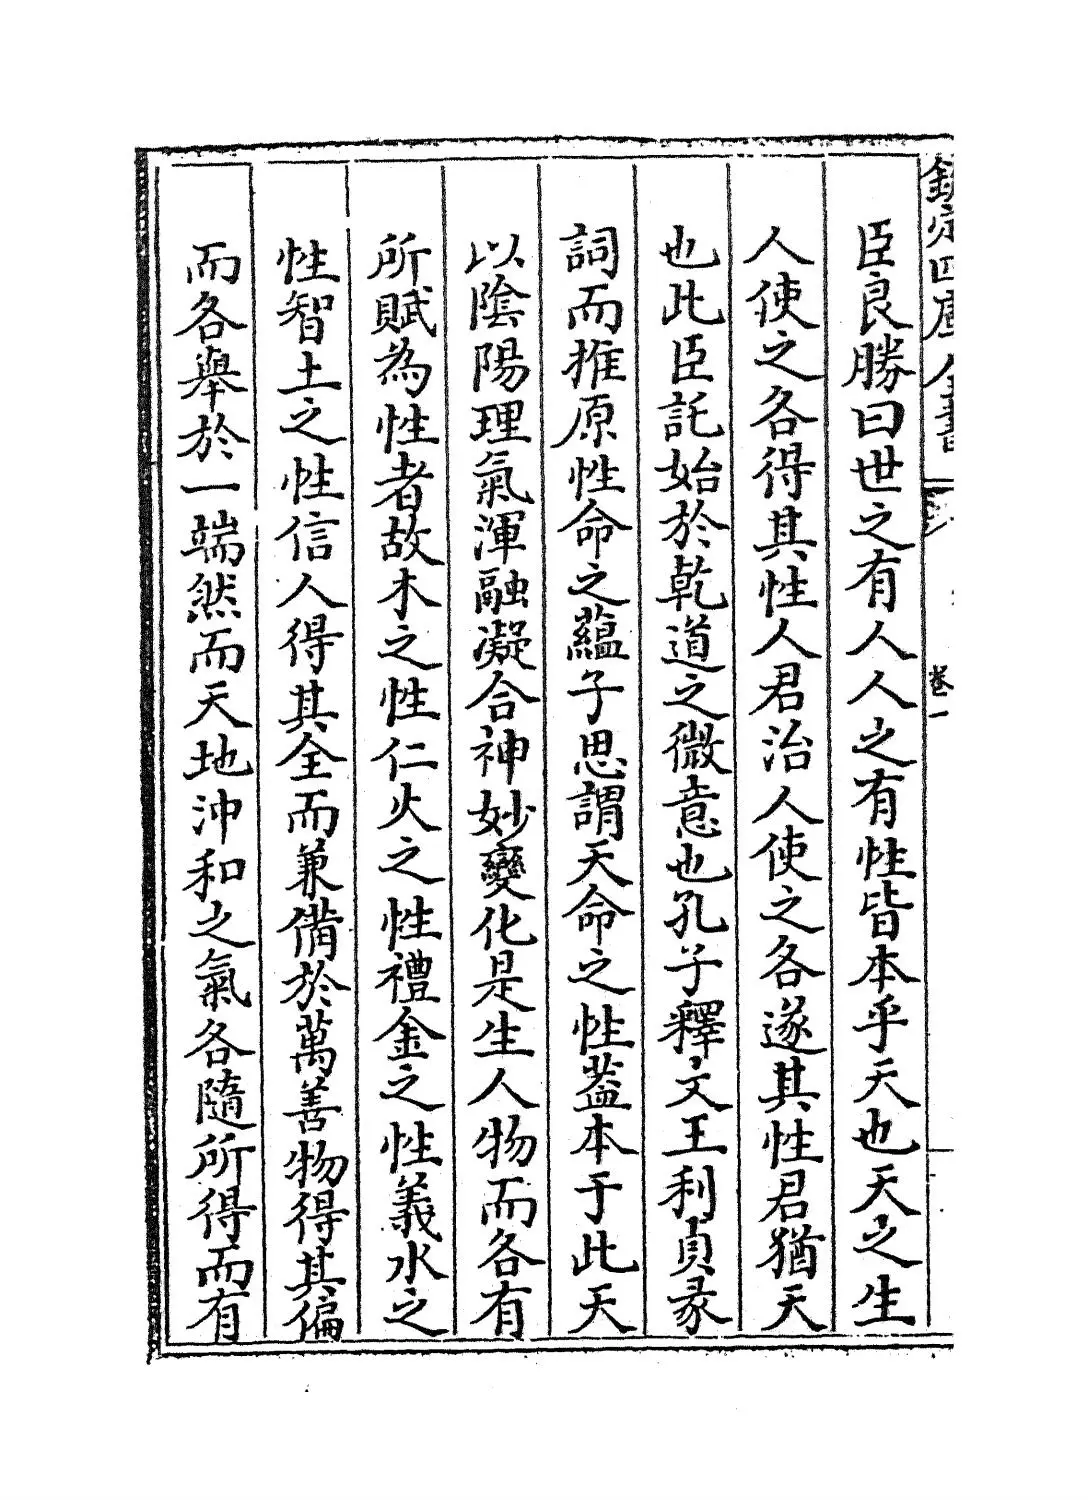 欽定四庫全書
卷一
臣良勝曰世之有人人之有性皆本乎天也天之生
人使之各得其性人君治人使之各遂其性君猶天
也此臣託始於乾道之微意也孔子釋文王利貞彖
詞而推原性命之蘊子思謂天命之性蓋本于此天
以陰陽理氣渾融凝合神妙變化是生人物而各有
所賦為性者故木之性仁火之性禮金之性義水之
性智土之性信人得其全而兼備於萬善物得其偏
而各舉於一端然而天地沖和之氣各隨所得而有